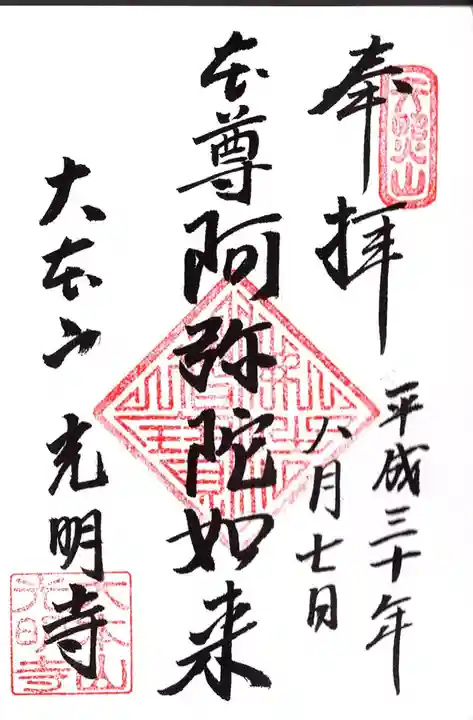 奉拝
天照山
平成三十年
八月七日
本尊阿弥陀如来
大本山光明寺
大本山
光明寺